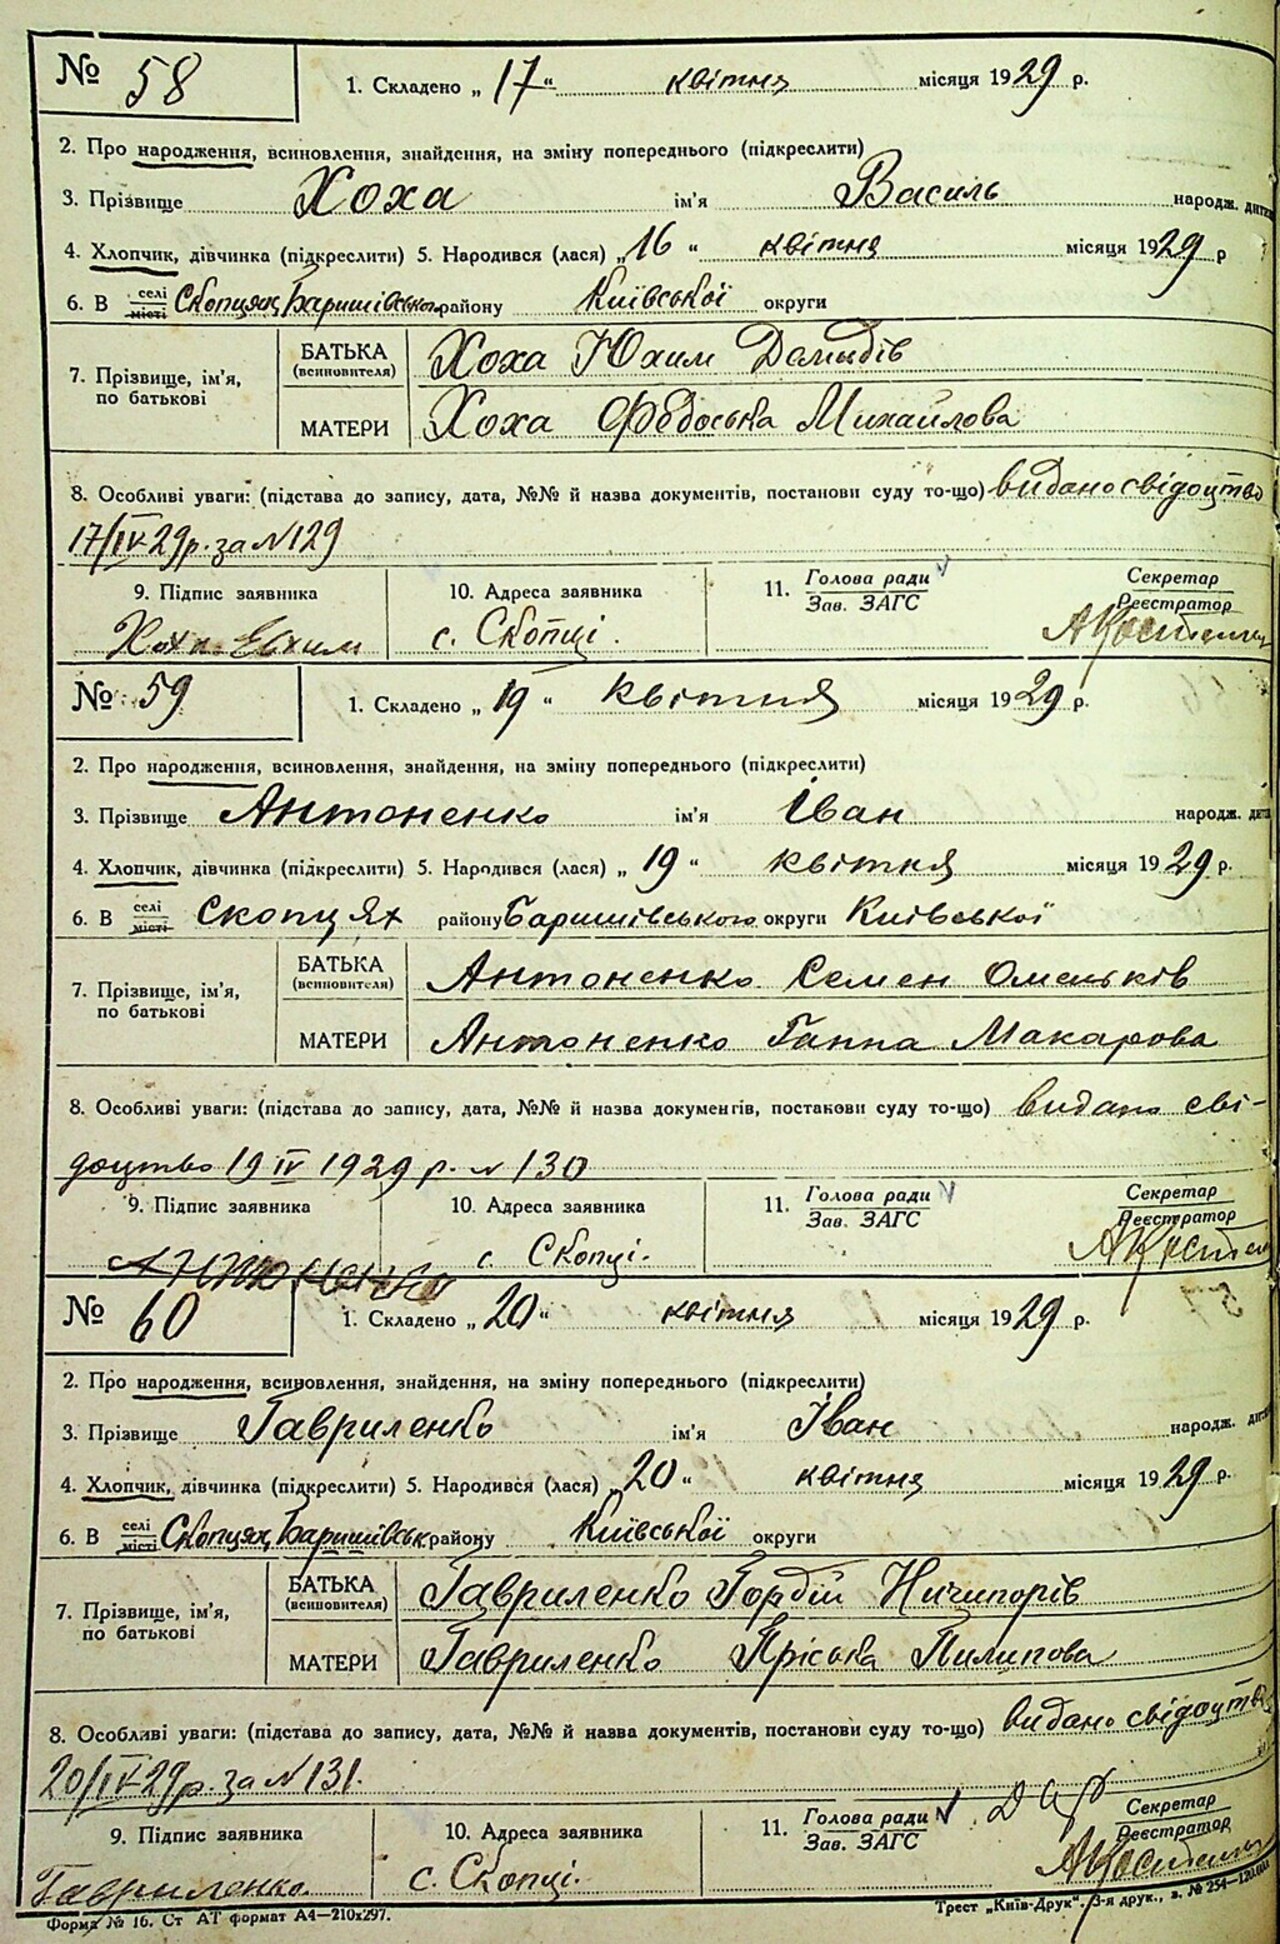 № 58
1. Складено „17“ квітня місяця 1929 р.
2. Про народження, всиновлення, знайдення, на зміну попереднього (підкреслити)
3. Прізвище Хоха ім'я Василь народж. дити
4. Хлопчик, дівчинка (підкреслити) 5. Народився (лася) „16“ квітня місяця 1929 р
6. В селі місті Скопцях Баришівського району Київської округи
7. Прізвище, ім'я, по батькові
БАТЬКА (всиновителя) Хоха Юхим Демидів
МАТЕРИ Хоха Федоська Михайлова
8. Особливі уваги: (підстава до запису, дата, №№ й назва документів, постанови суду то-що) видано свідоцтво
17/IV-29р. за №129
9. Підпис заявника 10. Адреса заявника 11. Голова ради Зав. ЗАГС Секретар Реєстратор
Хоха Евхим с. Скопці.
№ 59
1. Складено „19“ квітня місяця 1929 р.
2. Про народження, всиновлення, знайдення, на зміну попереднього (підкреслити)
3. Прізвище Антоненко ім'я Іван народж. дити
4. Хлопчик, дівчинка (підкреслити) 5. Народився (лася) „19“ квітня місяця 1929 р.
6. В селі місті Скопцях району Баришівського округи Київської
7. Прізвище, ім'я, по батькові
БАТЬКА (всиновителя) Антоненко Семен Омельків
МАТЕРИ Антоненко Ганна Макарова
8. Особливі уваги: (підстава до запису, дата, №№ й назва документів, постанови суду то-що) видано сві-
доцтво 19 IV 1929 р. № 130
9. Підпис заявника 10. Адреса заявника 11. Голова ради Зав. ЗАГС Секретар Реєстратор
Антоненко с. Скопці.
№ 60
1. Складено „20“ квітня місяця 1929 р.
2. Про народження, всиновлення, знайдення, на зміну попереднього (підкреслити)
3. Прізвище Гавриленко ім'я Іван народж. дити
4. Хлопчик, дівчинка (підкреслити) 5. Народився (лася) „20“ квітня місяця 1929 р.
6. В селі місті Скопцях Баришівськ району Київської округи
7. Прізвище, ім'я, по батькові
БАТЬКА (всиновителя) Гавриленко Гордій Ничипорів
МАТЕРИ Гавриленко Пріська Пилипова
8. Особливі уваги: (підстава до запису, дата, №№ й назва документів, постанови суду то-що) видано свідоцтво
20/IV-29р. за №131.
9. Підпис заявника 10. Адреса заявника 11. Голова ради Зав. ЗАГС Секретар Реєстратор
Гавриленко. с. Скопці.
Форма № 16. Ст АТ формат А4—210х297.
Трест „Київ-Друк“. 3-я друк., з. № 254—120.000